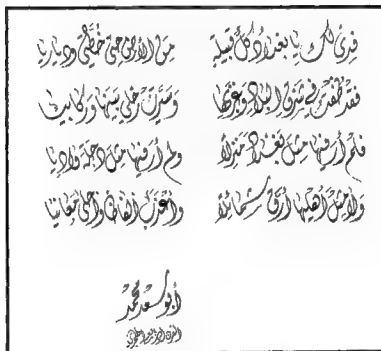 فدى لك يا بغداد كل قبيلة من الأرض حتى خطتي ودياريا
فقد طفت في شرق البلاد وغربها وسيرت خيلي بينها وركابيا
فلم أر فيها مثل بغداد منزلا ولم أر فيها مثل دجلة واديا
ولا مثل أهليها أرق شمائلا وأعذب ألفاظا وأحلى معانيا
أبو سعد محمد